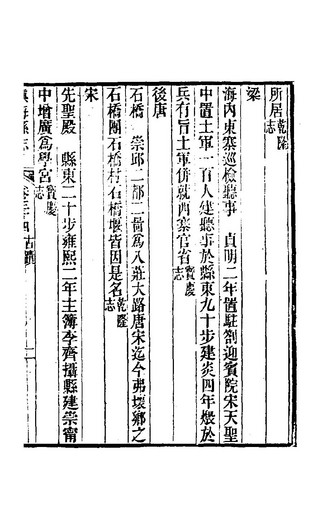 所居乾隆志
梁
海内東寨巡檢聽事　貞明二年置駐劄迎賓院宋天聖
中置土軍一百人建聽事於縣東九十步建炎四年燬於
兵有旨土軍併就西寨官省寶慶志
後唐
石橋　崇邱二都二啚爲入莊大路唐宋迄今弗壞鄉之
石橋團石橋村石橋堰皆因是名乾隆志
宋
先聖殿　縣東二十步雍熙二年主簿李齊攝縣建崇甯
中增廣爲學宮寶慶志
鎮海縣志